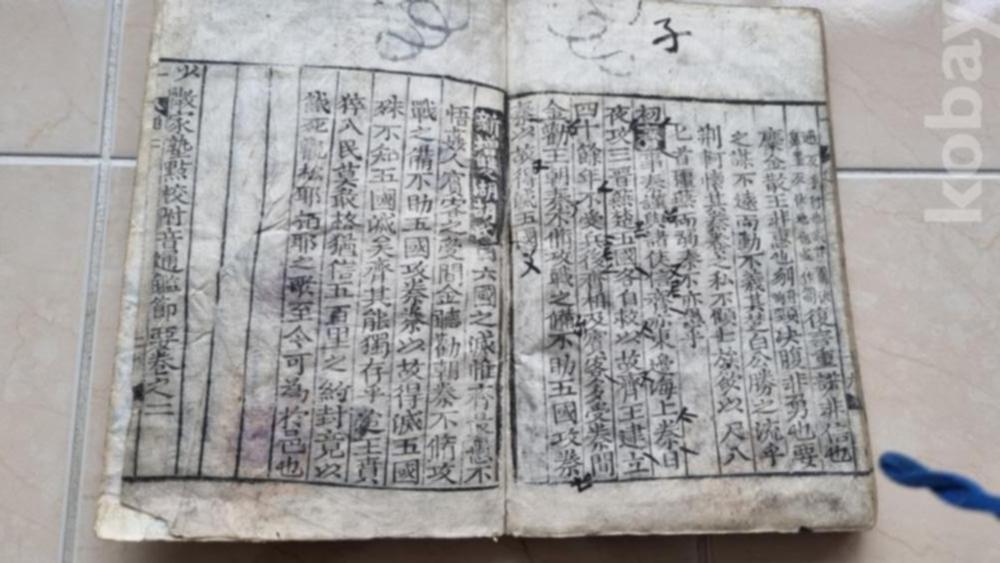 子
復言重諾非信也
糜金散玉非惠也刎頸決腹非勇也要
之謀不遠而動不義其楚白公勝之流乎
荊軻懷其豢養之私不顧七族欲以尺八
匕首彊燕而弱秦不亦愚乎
初齊事秦謹與諸侯信齊亦東邊海上秦日
夜攻三晉燕楚五國各自救以故齊王建立
四十餘年不受兵後齊相及賓客多受秦間
金勸王朝秦不脩攻戰之備不助五國攻秦
秦以故得滅五國
新增 六國之滅惟齊 不
悟 人賓客之受間金聽勸朝秦不脩攻
戰之備不助五國攻秦秦以故得滅五國
殊不知五國滅矣齊其能獨存乎 王賁
猝入民莫敢格猶信五百里之約封竟以
餓死觀松耶栢耶之歌至今可為於邑也
少微家塾點校附音通鑑節要卷之二
kobay